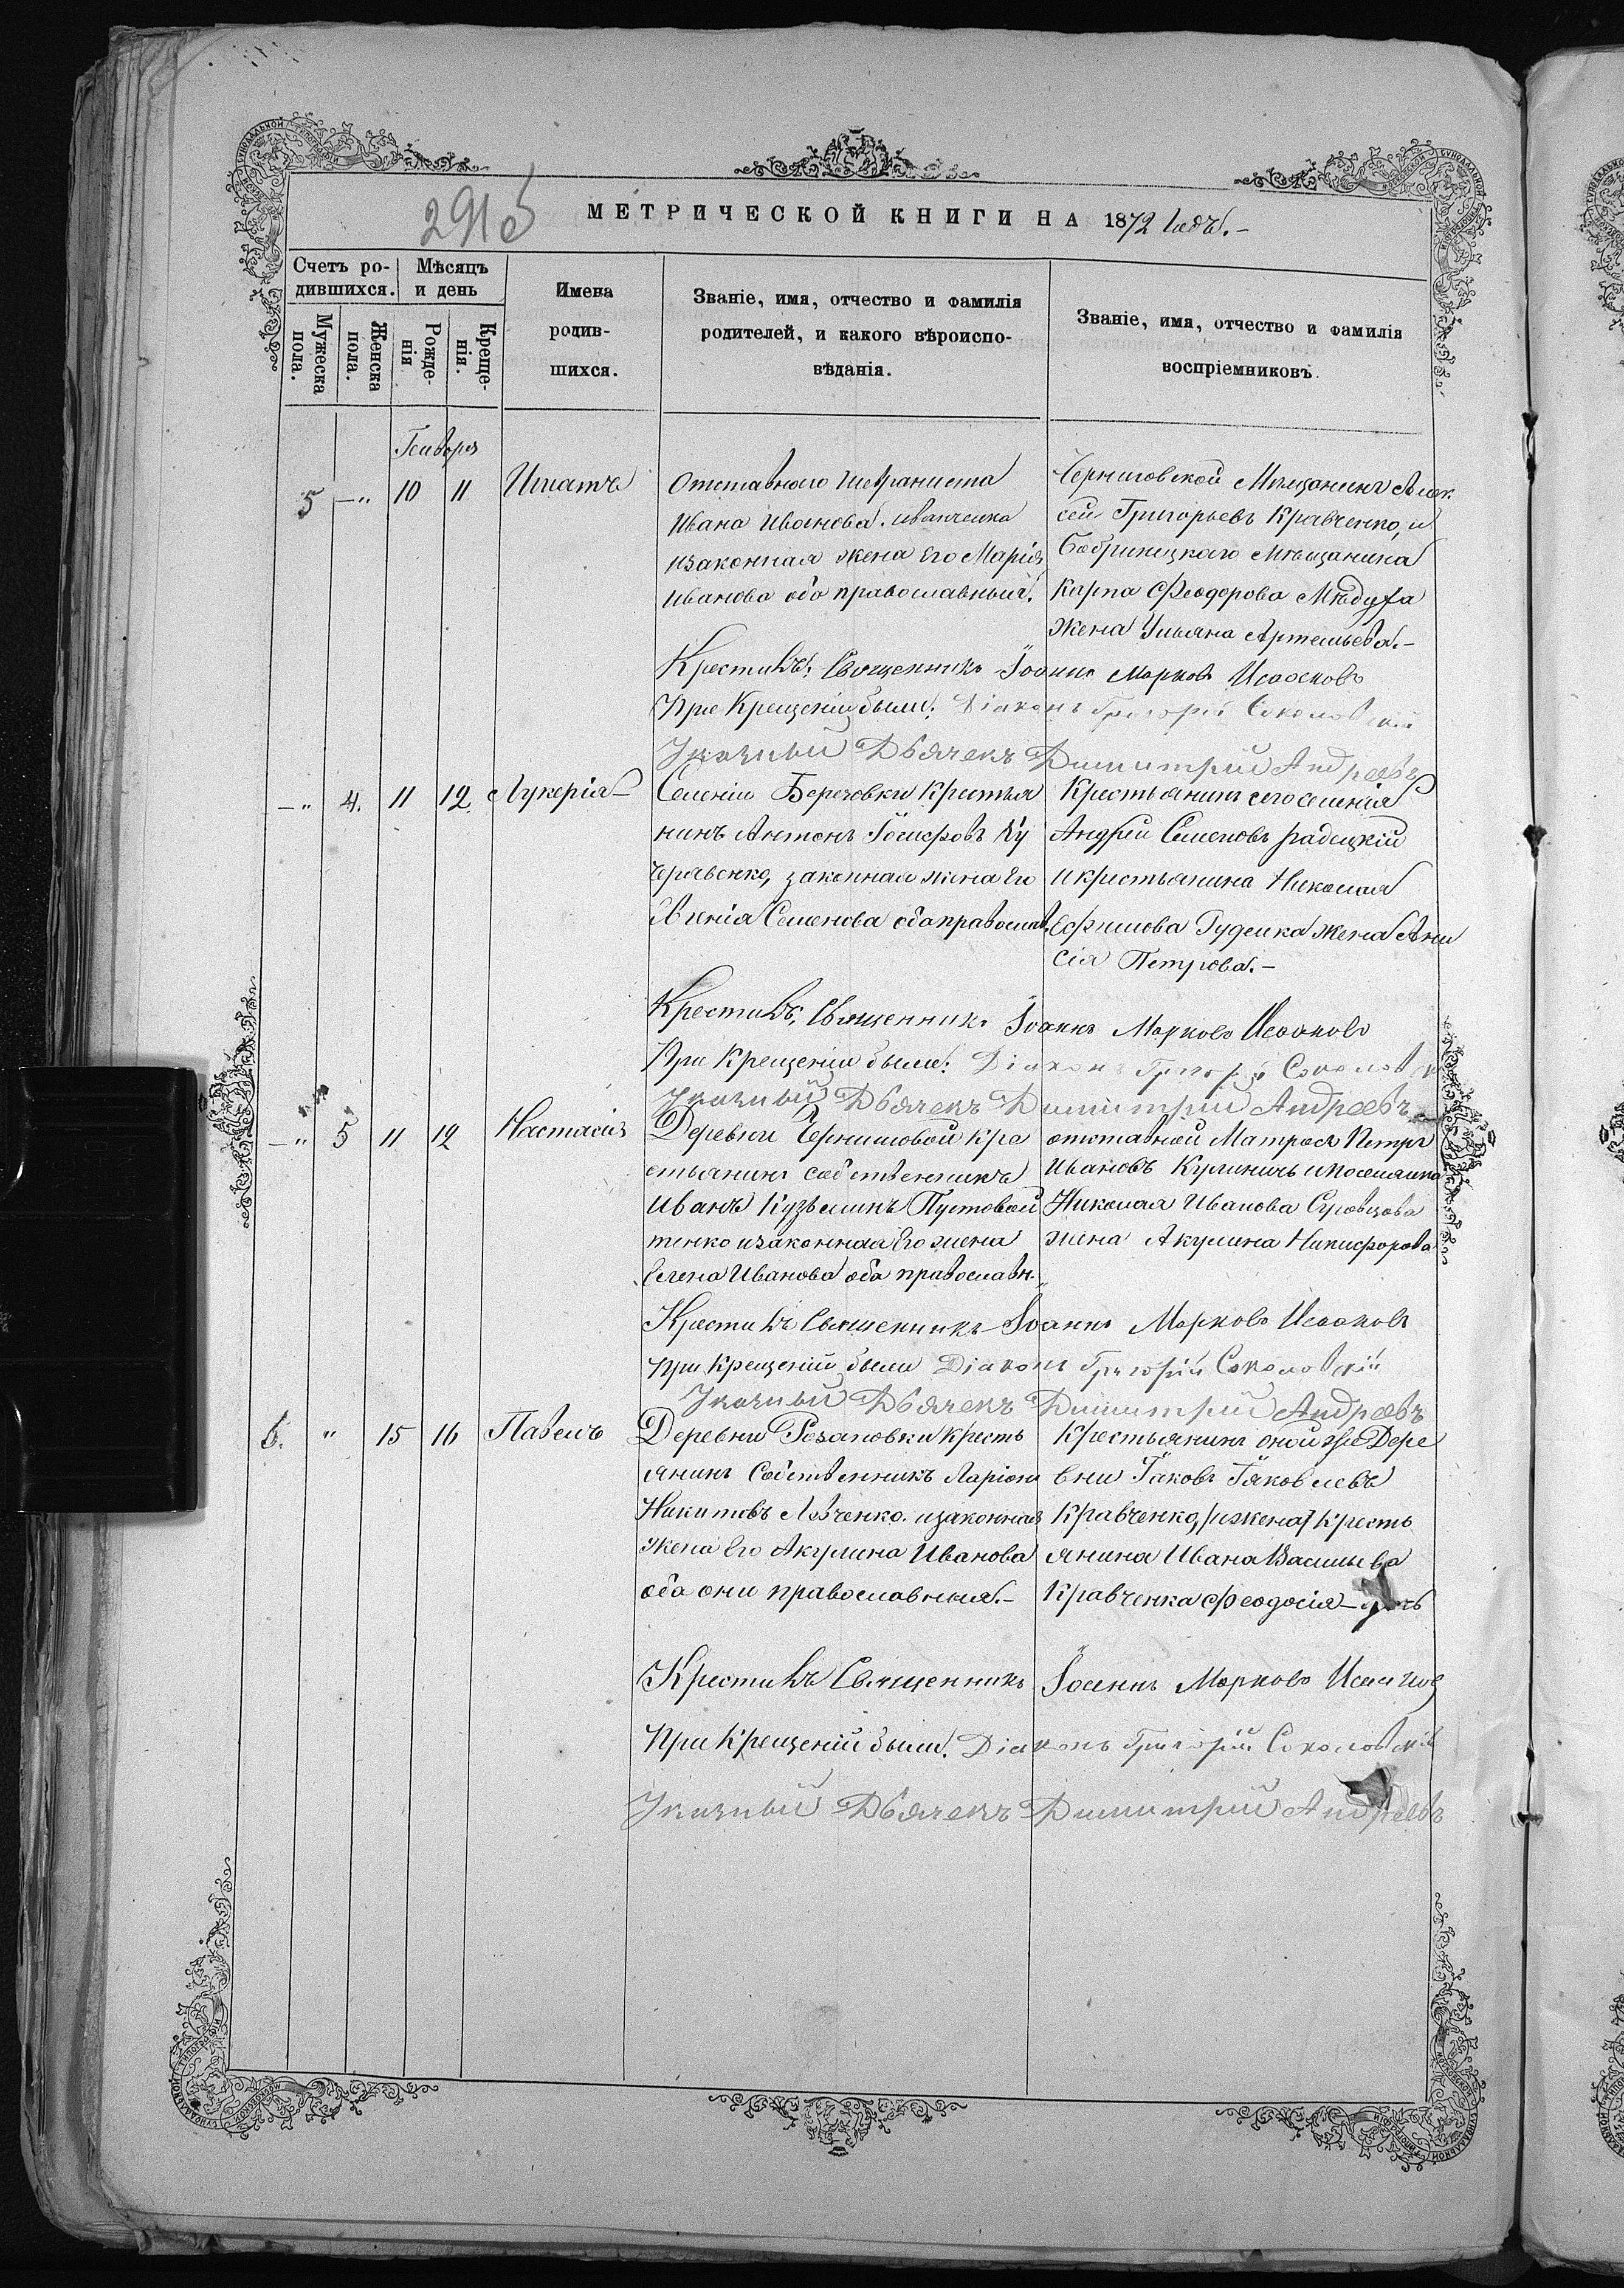 291об
МЕТРИЧЕСКОЙ КНИГИ НА 1872 годъ.-
Счетъ ро-
дившихся.
Мѣсяцъ
и день
Мужеска
пола.
Женска
пола.
Рожде-
нія
Креще-
нія.
Имена
родив-
шихся.
Званіе, имя, отчество и фамилія
родителей, и какого вѣроиспо-
вѣданія.
Званіе, имя, отчество и фамилія
воспріемниковъ.
Генворя
5 -" 10 11 Игнатъ
Отставнаго
Ивана Иванова Иванченка
изаконная жена Его Марія
Иванова оба православныи.
Черниговской Мѣщанинъ Алек
сей Григорьевъ Кравченко, и
Бобринецкаго Мѣщанина
Карпа Феодорова
жена Ульяна Артемьева.-
Крестилъ: Священникъ Іоаннъ Марковъ Исааковъ
При Крещеніи были: Діаконъ Григорій Соколовскій
Указный Дьячекъ Димитрій Андреевъ
-" 4. 11 12 Лукерія-
Селенія Березовки Крестья
нинъ Антонъ Іосифовъ Ку
черявенко, законная жена Его
Евгенія Семенова оба православ.
Крестьянинъ сего селенія
Андрей Семеновъ Радецкій
и крестьянина Николая
Ефимова Гуденка жена Ани
сія Петрова.-
Крестилъ: Священникъ Іоаннъ Марковъ Исааковъ
При Крещеніи были: Діаконъ Григорій Соколовскій
Указный Дьячекъ Димитрій Андреевъ
-" 5 11 12 Настасія
Деревни Кре
стьянинъ собственникъ
Иванъ Кузьминъ Пустовой
тенко изаконная Его жена
Елена Иванова оба православн.
отставной Матросъ Петръ
Ивановъ Кулиничъ
Николая Иванова Суровцова
жена Акулина Никифорова
Крестилъ Священникъ Іоаннъ Марковъ Исааковъ
При Крещеніи были Діаконъ Григорій Соколовскій
Указный Дьячекъ Димитрій Андреевъ
6. " 15 16 Павелъ
Деревни Розановки кресть
янинъ Собственникъ Ларіонъ
Никитовъ Левченко. изаконная
жена Его Акулина Иванова
оба они православныя.-
Крестьянинъ оной же Дере
вни Іаковъ Іаковлевъ
Кравченко, /ижена/ кресть
янина Ивана Васильева
Кравченка Феодосія-
Крестилъ Священникъ Іоаннъ Марковъ Исааковъ
При Крещеніи были: Діаконъ Григорій Соколовскій
Указный Дьячекъ Димитрій Андреевъ